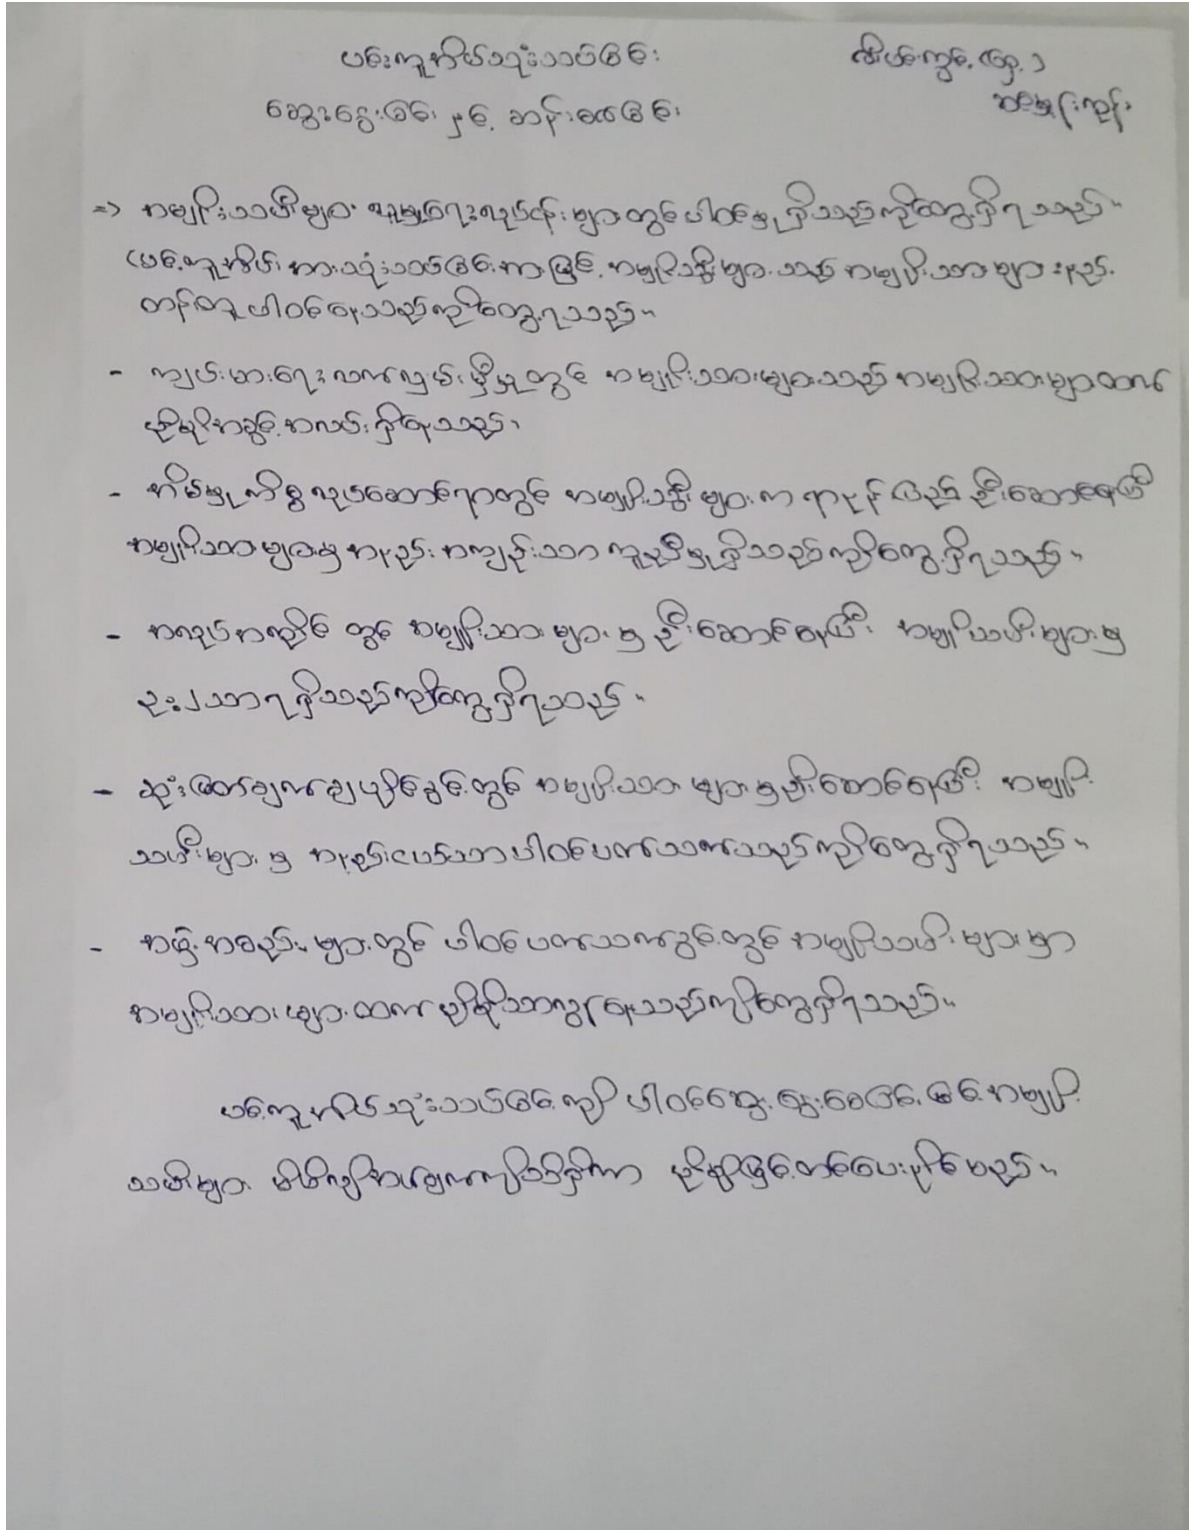 ပင့်ကူအိမ်သုံးသပ်ခြင်း
ဆွေးနွေးခြင်း ၂၄ ဆန်းစစ်ခြင်း
=> အမျိုးသမီးများ လူမှုရေးလုပ်ငန်းများတွင် ပါဝင်မှု ရှိသည်ကိုတွေ့ရှိရသည်။
(ပင့်ကူအိမ်) အားသုံးသပ်ခြင်းအားဖြင့် အမျိုးသမီးများ သည် အမျိုးသားများနည်း
တန်းတူ ပါဝင်နေသည်ကိုတွေ့ရသည်။
- ကျမ်းမာရေး လက်လှမ်းမှီမှုတွင် အမျိုးသားများသည် အမျိုးသားများထက်
ပိုမိုအခွင့်အလမ်းရှိနေသည်။
- အိမ်မှုကိစ္စလုပ်ဆောင်ရာတွင် အမျိုးသမီးများက ရာနှုန်းပြည့် ဦးဆောင်နေပြီး
အမျိုးသားများမှ အနည်းအကျဉ်းသာ ကူညီမှုရှိသည်ကိုတွေ့ရှိရသည်။
- အလုပ်အကိုင် တွင် အမျိုးသားများမှ ဦးဆောင်နေပြီး အမျိုးသမီးများမှ
ဦး၂သာ ရှိသည်ကိုတွေ့ရှိရသည်။
- ဆုံးဖြတ်ချက်ချပိုင်ခွင့်တွင် အမျိုးသားများမှဦးဆောင်နေပြီး အမျိုး
သမီးများမှ အနည်းငယ်သာပါဝင်ပတ်သက်သည်ကိုတွေ့ရှိရသည်။
- အဖွဲ့အစည်းများတွင် ပါဝင်ပတ်သက်ခွင့်တွင် အမျိုးသမီးများမှာ
အမျိုးသားများထက် ပိုမိုသာလွန်နေသည်ကိုတွေ့ရှိရသည်။
ပင့်ကူအိမ်သုံးသပ်ခြင်းကို ပါဝင်ဆွေးနွေးစေခြင်းဖြင့် အမျိုး
သမီးများ မိမိကိုယ်ကိုသိရှိကာ ပိုမိုမြှင့်တင်ပေးနိုင်မည်။